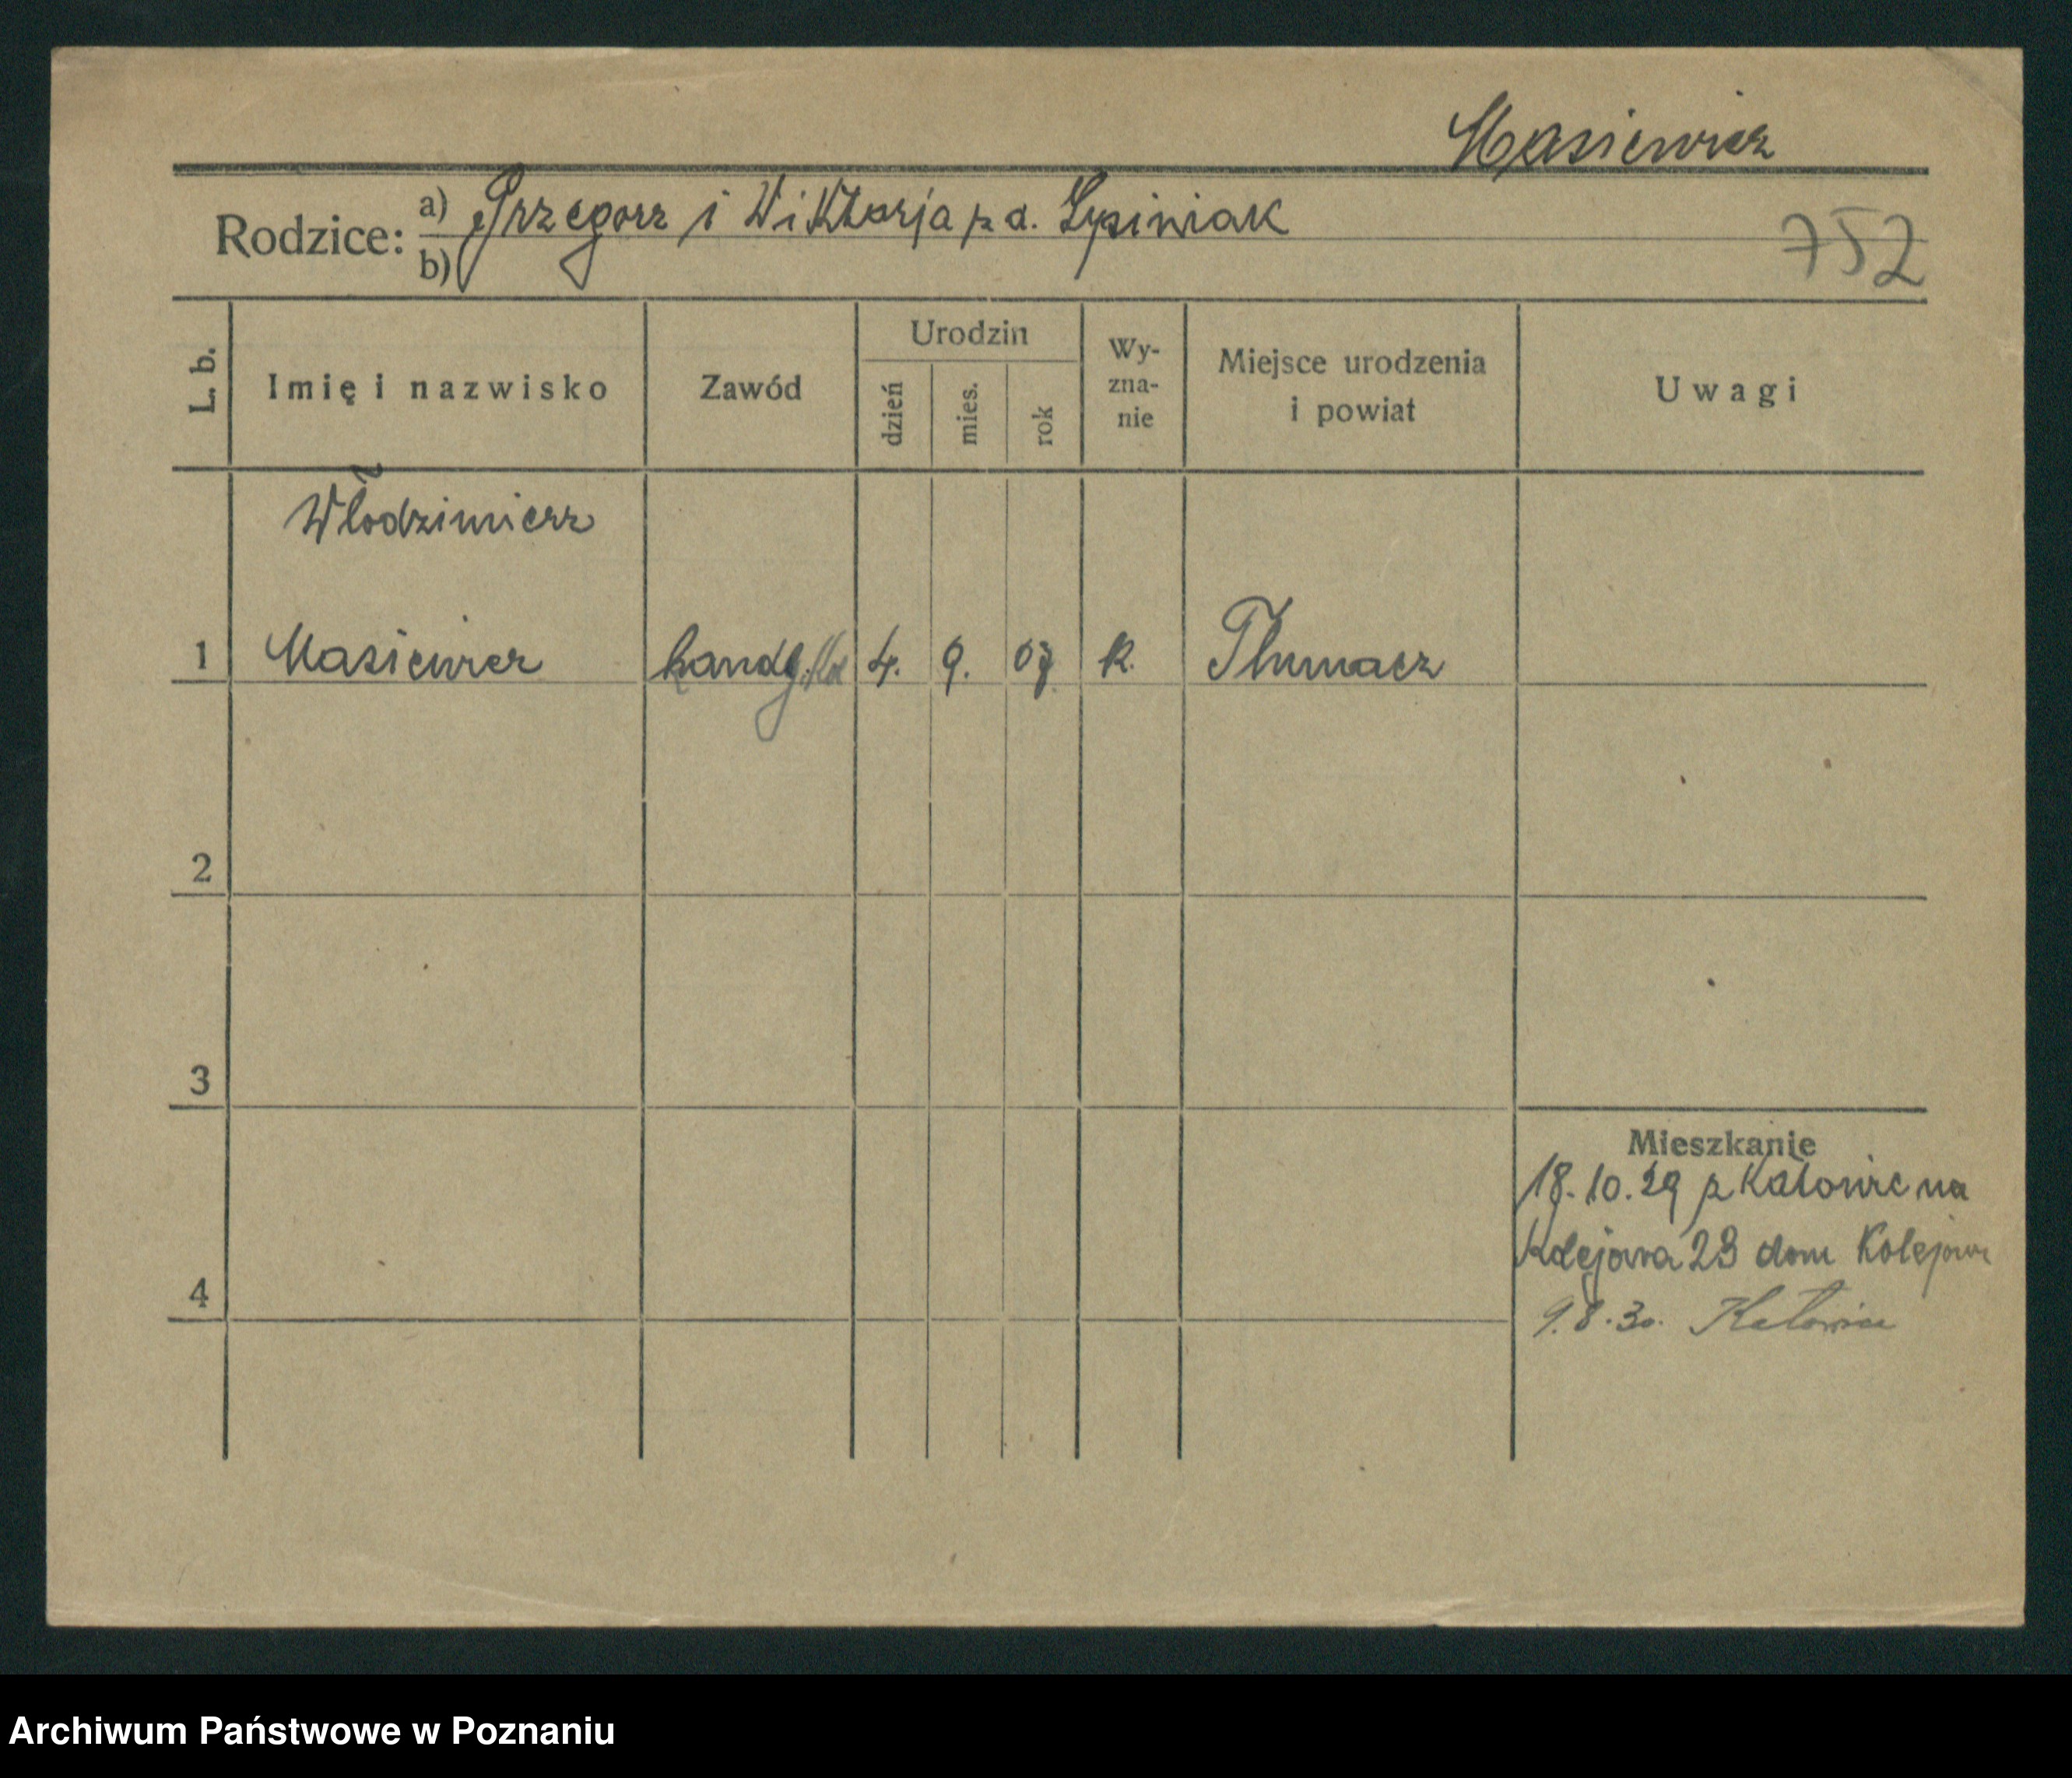 Masiewicz
Rodzice: a) Grzegorz i Wiktorja z d. Łysiniak
b)
752
L. b.
Imię i nazwisko
Zawód
Urodzin
dzień
mies.
rok
Wy-
zna-
nie
Miejsce urodzenia
i powiat
Uwagi
Włodzimierz
1 Masiewicz 4. 9. 07 k. Tłumacz
2
3
4
Mieszkanie
18.10.29 z Katowic na
Kolejowa 23 dom Kolejow
9.8.30. Katowice
Archiwum Państwowe w Poznaniu